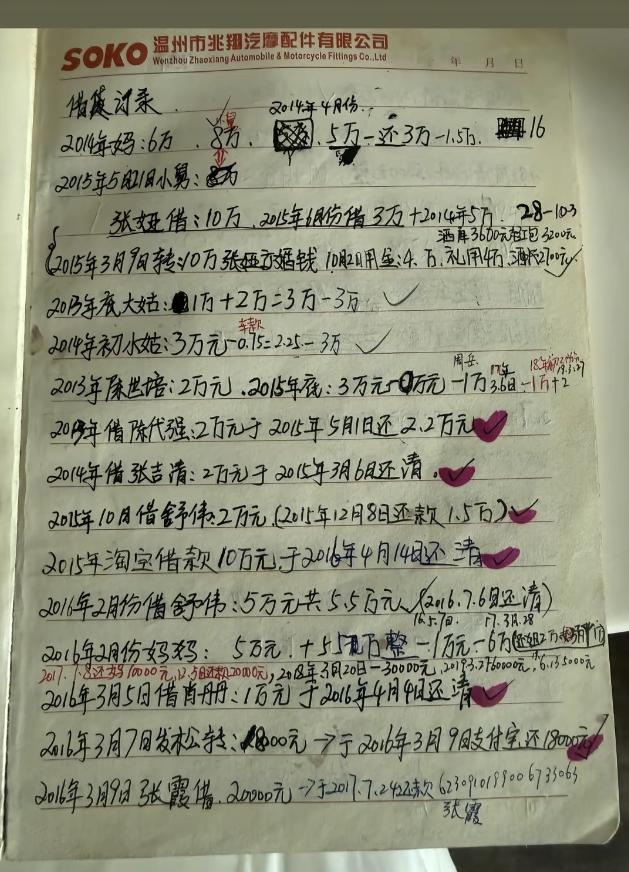 SOKO 温州市兆翔汽摩配件有限公司
Wenzhou Zhaoxiang Automobile & Motorcycle Fittings Co.,Ltd
年 月 日
借贷记录
2014年4月份
2014年妈:6万 8万 5万-还3万-1.5万 16
2015年5月21日小舅:
张娅借:10万 2015年6月份借3万+2014年5万 28-10
酒席3600元 红包3200元
2015年3月9日转:10万张娅 婚钱 10月2日用金:4.万
2013年底大姑:1万+2万=3万-3万 ✓
2014年初小姑:3万元-0.75=2.25-3万 ✓
2013年陈世培:2万元.2015年底:3万元 万元-1万 -1万+2
借陈代强:2万元于2015年5月1日还2.2万元 ✓
2014年借张吉清:2万元于2015年3月6日还清. ✓
2015年10月借舒伟:2万元.(2015年12月8日还款1.5万) ✓
2015年淘宝借款10万元于2016年4月14日还清 ✓
2016年2月份借舒伟:5万元共5.5万元(2016.7.6日还清)
16.5.7日. 17.3月.28
2016年2月份妈妈: 5万元 整-1万元-6万
2017.1.8还妈10000元, 还款20000元, 2018年3月20日-30000元,
2016年3月5日借肖丹丹:1万元 于2016年4月4日还清 ✓
2016年3月7日 转: 8000元→于2016年3月9日支付宝还18000元
2016年3月9日张霞借.20000元→于2017.7.24还款
张霞